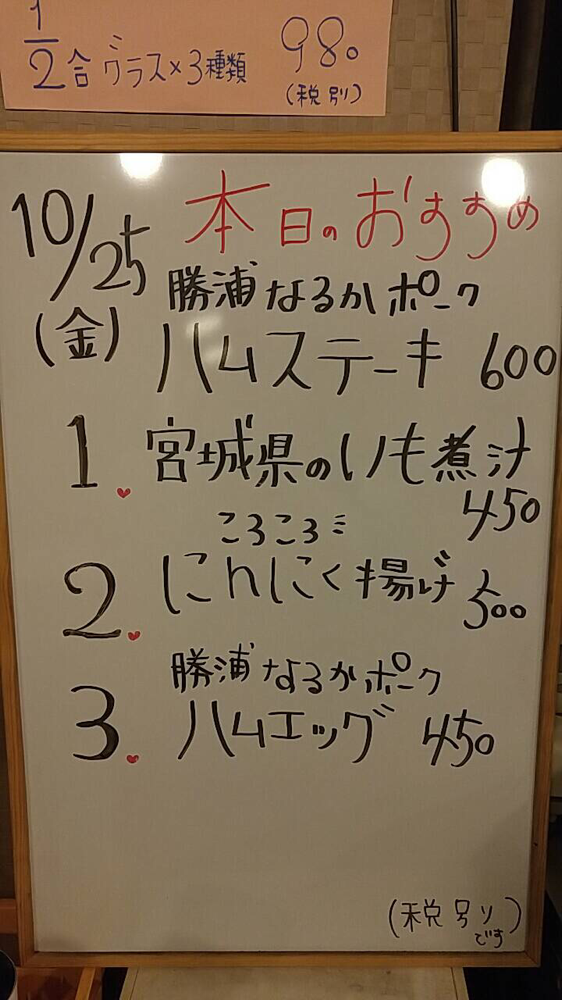 1/2合グラス×3種類 980
(税別)
10/25
(金)
本日のおすすめ
勝浦なるかポーク
ハムステーキ 600
1. 宮城県のいも煮汁
450
ころころミ
2. にんにく揚げ 500
勝浦なるかポーク
3. ハムエッグ 450
(税別)
です